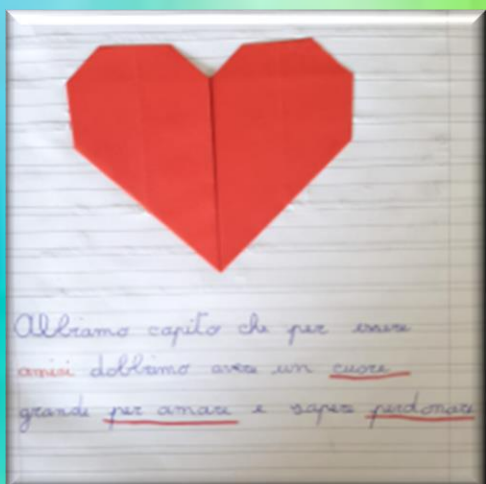 Abbiamo capito che per essere
amici dobbiamo avere un cuore
grande per amare e sapere perdonare